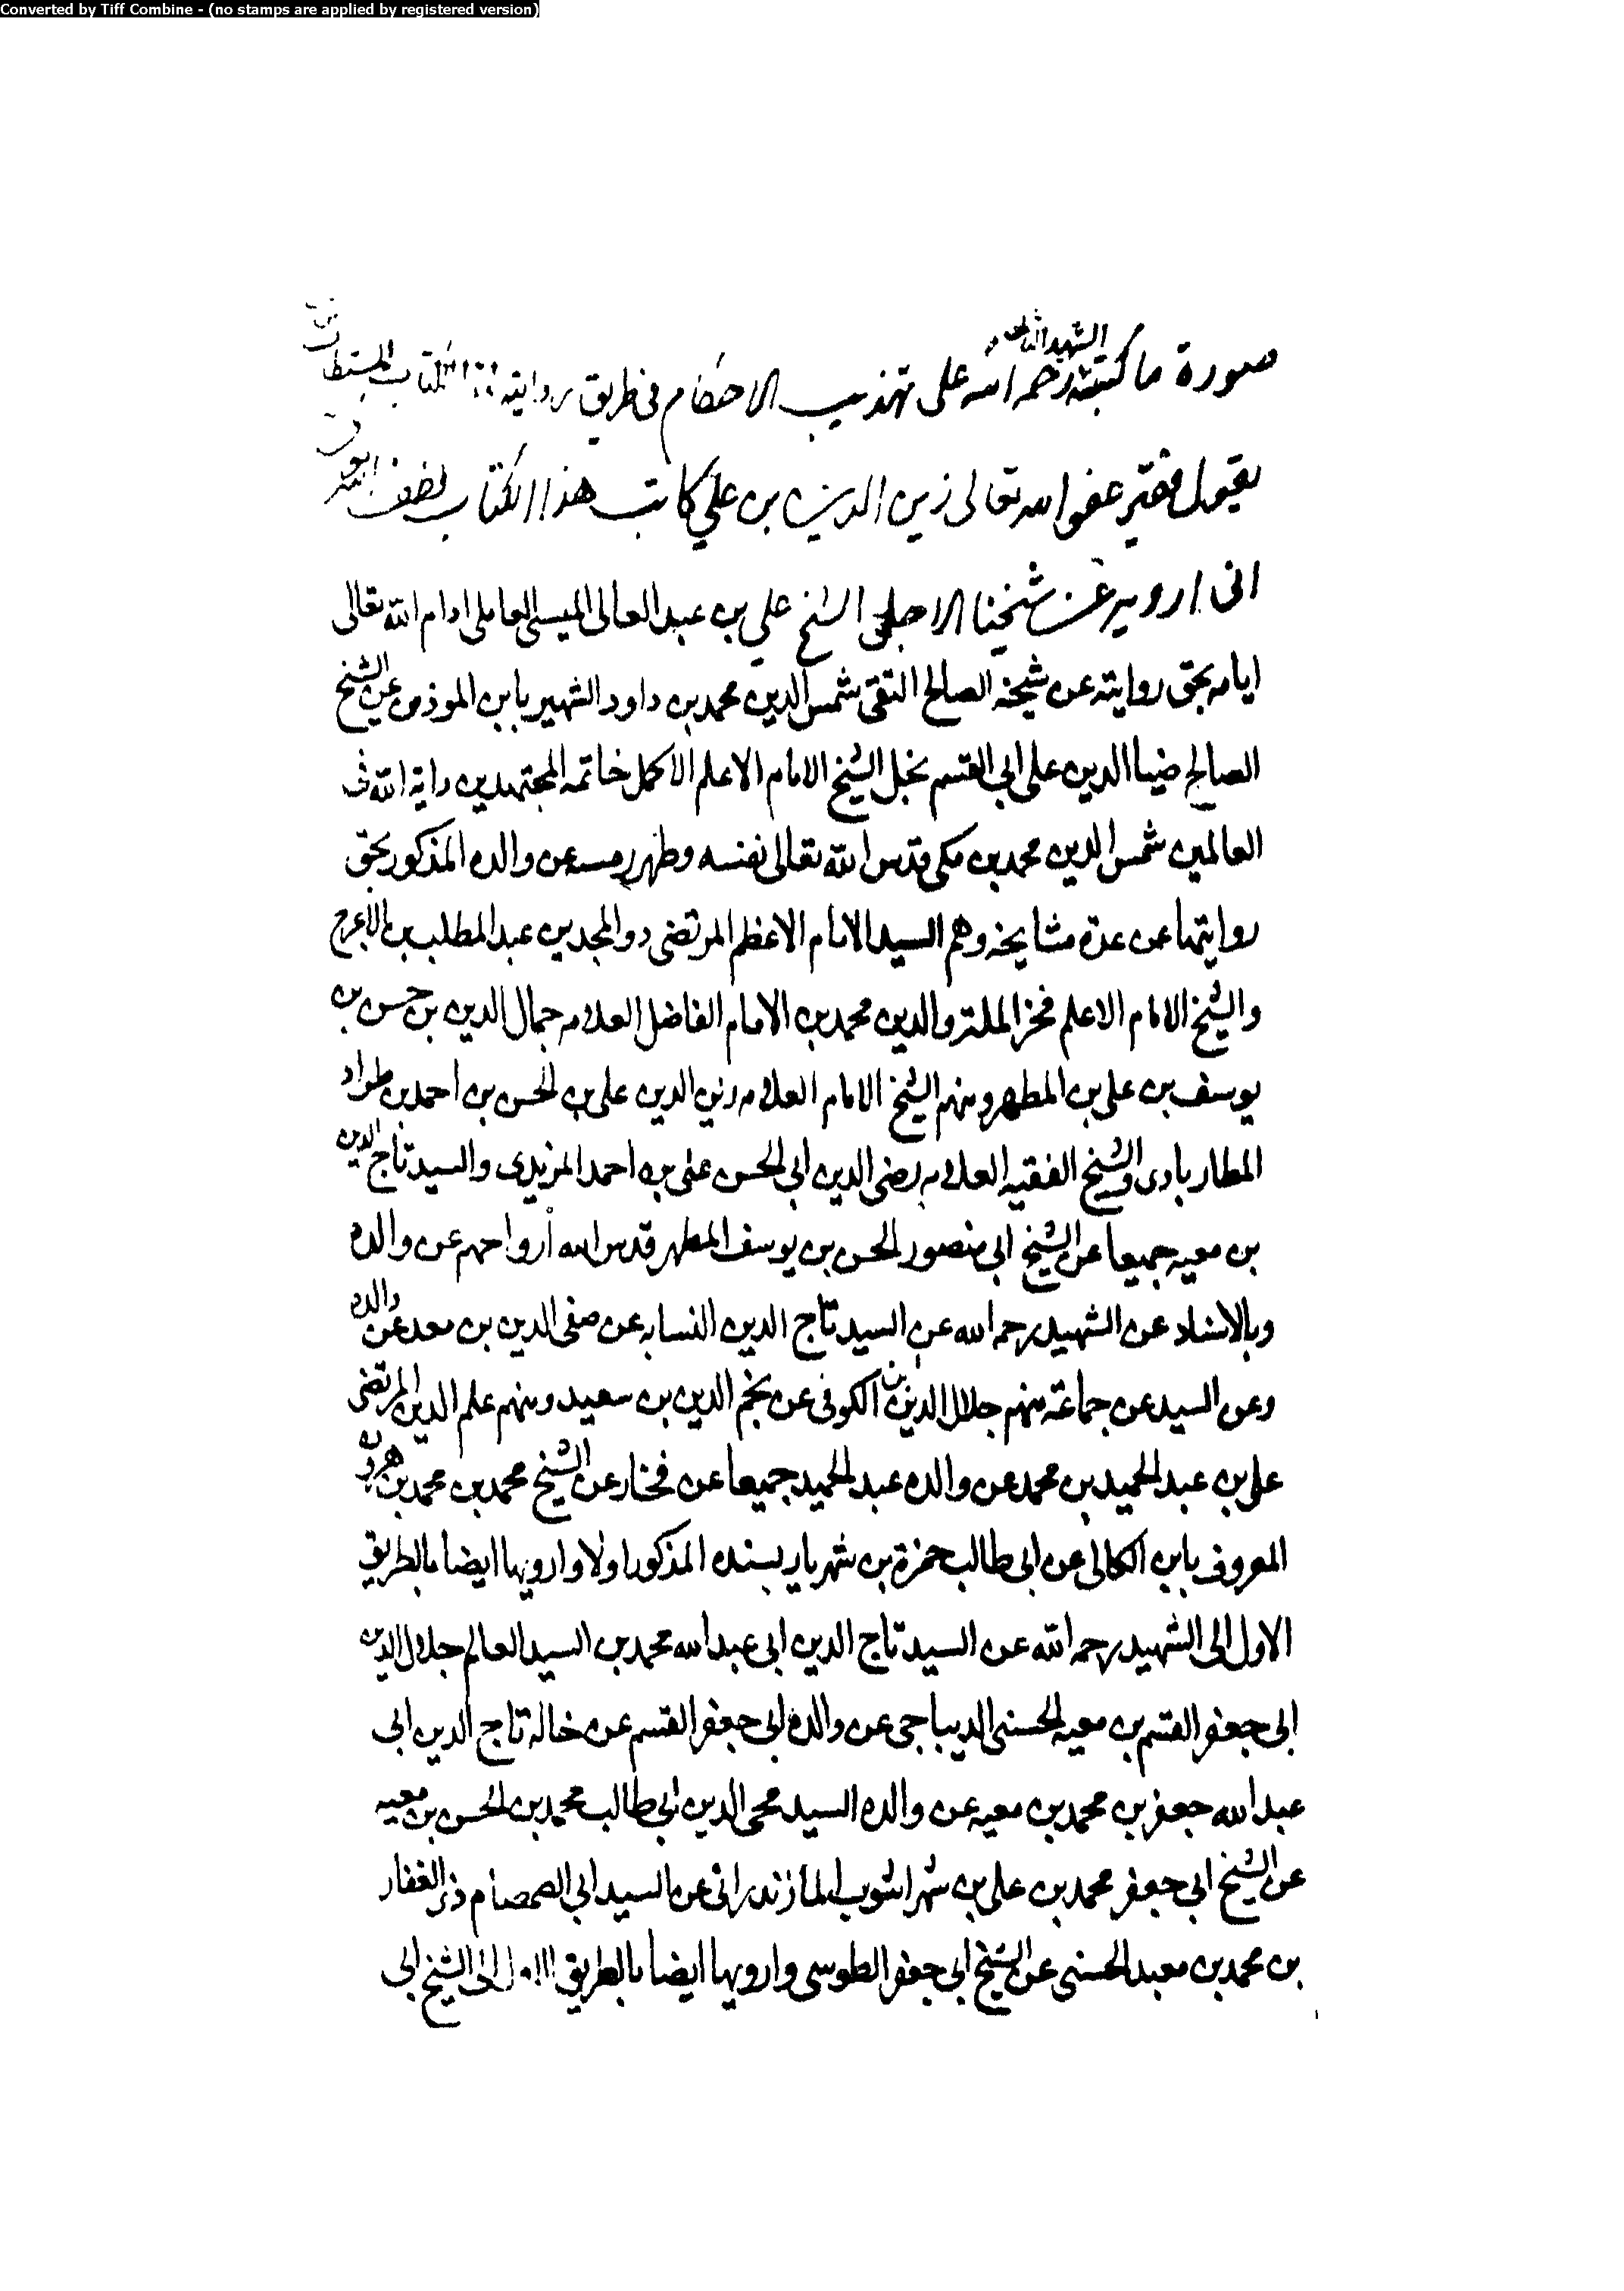 Converted by Tiff Combine - (no stamps are applied by registered version)
صورة ما كتبته الشهيد الثاني رحمه الله على تهذيب الاحكام في طريق روايته الكتاب المستطاب
يقول فقير عفو الله تعالى زين الدين بن علي كاتب هذا الكتاب
انى ارويه عن شيخنا الاجل الشيخ علي بن عبد العالى الميسى العاملى ادام الله تعالى
ايامه بحق روايته عن شيخه الصالح التقى شمس الدين محمد بن داود الشهير بابن الموذن عن الشيخ
الصالح ضيا الدين على ابى القسم نجل الشيخ الامام الاعلم الاكمل خاتمه المجتهدين واية الله فى
العالمين شمس الدين محمد بن مكى قدس الله تعالى نفسه وطهر رمسه عن والده المذكور بحق
روايتها عن عدة مشايخه وهم السيد الامام الاعظم المرتضى ذو المجدين عبد المطلب بن الاعرج
والشيخ الامام الاعلم فخر الملة والدين محمد بن الامام الفاضل العلامه جمال الدين بن حسن بن
يوسف بن على بن المطهر ومنهم الشيخ الامام العلامه زين الدين على بن الحسن بن احمد بن طراد
المطاربادى والشيخ الفقيه العلامه رضى الدين ابى الحسن على بن احمد المزيدى والسيد تاج الدين
بن معيه جميعا عن الشيخ ابى منصور الحسن بن يوسف المطهر قدس الله أرواحهم عن والده
وبالاسناد عن الشهيد رحمه الله عن السيد تاج الدين النسابه عن صفى الدين بن معد عن والده
وعن السيد عن جماعة منهم جلال الدين بن الكوفى عن نجم الدين بن سعيد ومنهم علم الدين المرتضى
على بن عبد الحميد بن محمد عن والده عبد الحميد جميعا عن فخار عن الشيخ محمد بن محمد بن هرون
المعروف بابن الكالى عن ابى طالب حمزة بن شهريار بسنده المذكور اولا وارويها ايضا بالطريق
الاول الى الشهيد رحمه الله عن السيد تاج الدين ابى عبد الله محمد بن السيد العالم جلال الدين
ابى جعفر القسم بن معيه الحسنى الديباجى عن والده ابى جعفر القسم عن خاله تاج الدين ابى
عبد الله جعفر بن محمد بن معيه عن والده السيد محى الدين ابى طالب محمد بن الحسن بن معيه
عن الشيخ ابى جعفر محمد بن على بن شهراشوب المازندرانى عن السيد ابى الصمصام ذى الفقار
بن محمد بن معبد الحسنى عن الشيخ ابى جعفر الطوسى وارويها ايضا بالطريق الاول الى الشيخ ابى